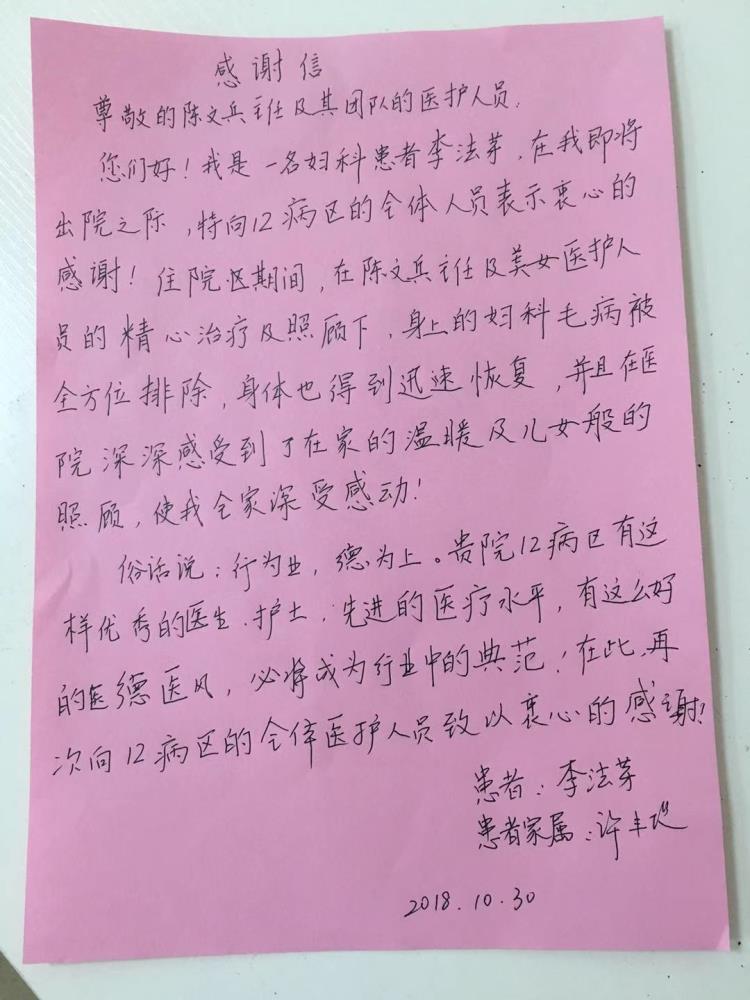 感谢信
尊敬的陈文兵主任及其团队的医护人员,
您们好!我是一名妇科患者李法芽,在我即将
出院之际,特向12病区的全体人员表示衷心的
感谢!住院区期间,在陈文兵主任及美女医护人
员的精心治疗及照顾下,身上的妇科毛病被
全方位排除,身体也得到迅速恢复,并且在医
院深深感受到了在家的温暖及儿女般的
照顾,使我全家深受感动!
俗话说:行为业,德为上。贵院12病区有这
样优秀的医生、护士,先进的医疗水平,有这么好
的医德医风,必将成为行业中的典范!在此,再
次向12病区的全体医护人员致以衷心的感谢!
患者:李法芽
患者家属:许丰
2018.10.30